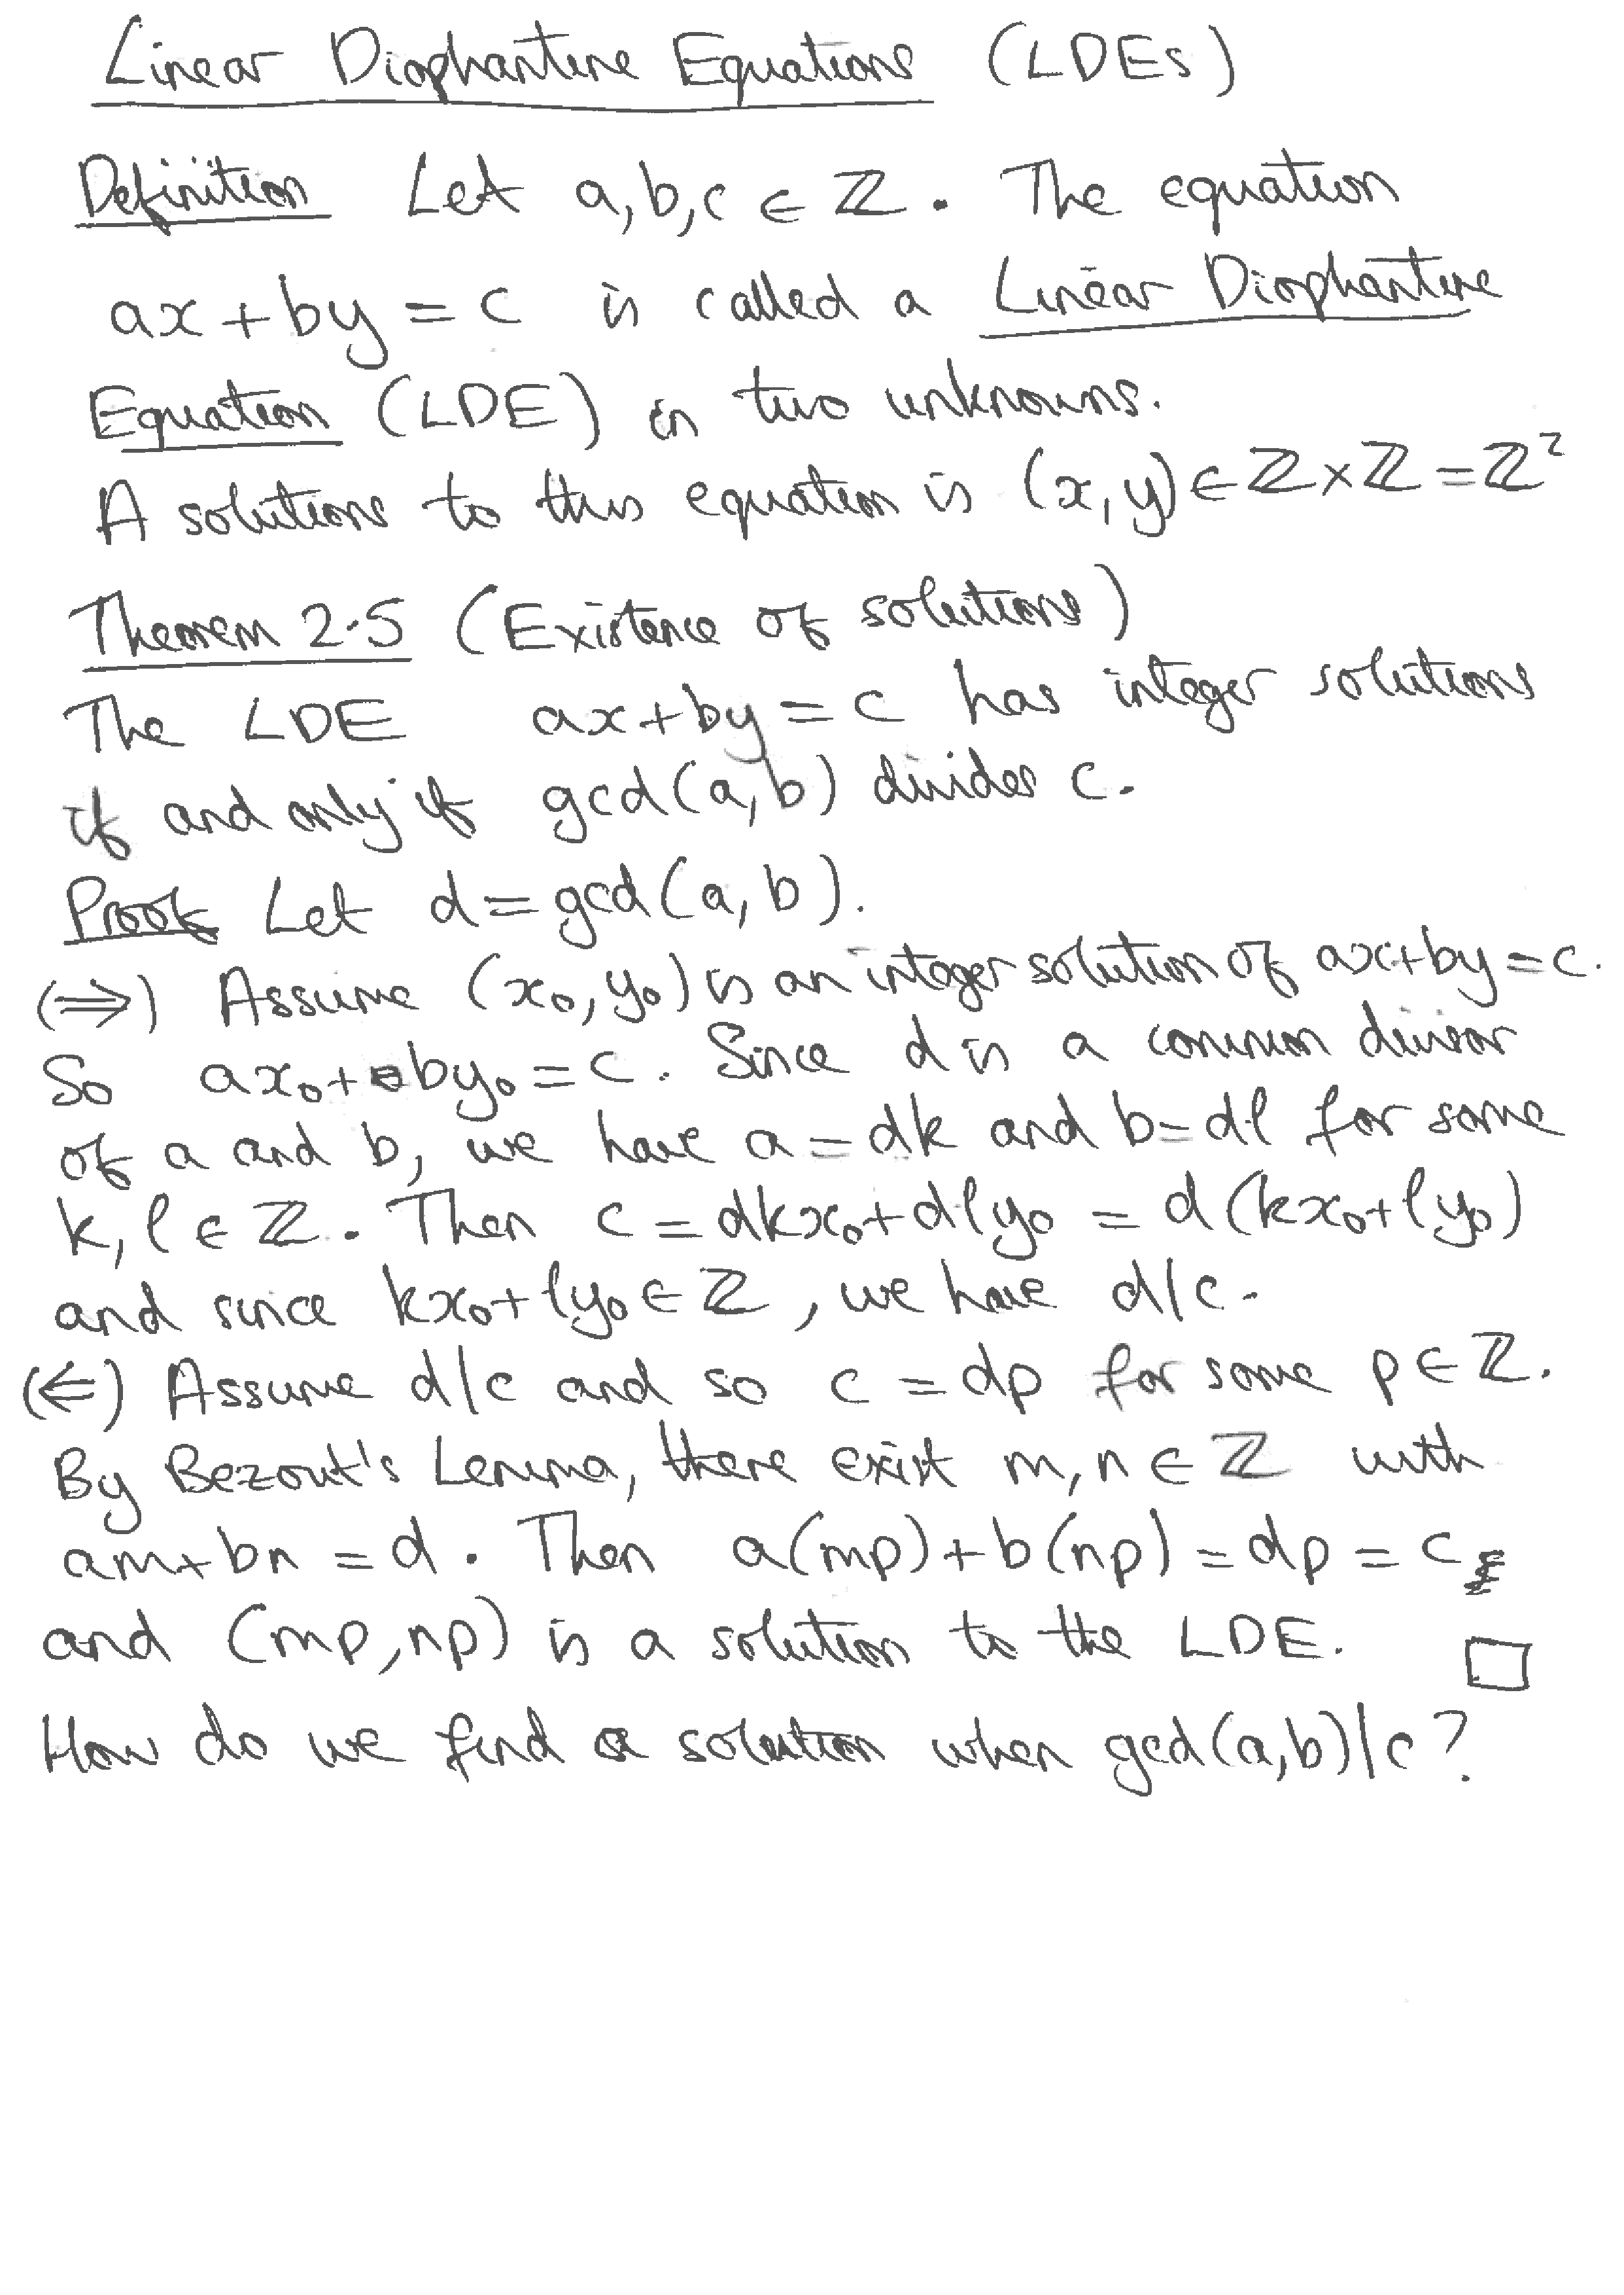 Linear Diophantine Equations (LDEs)
Definition Let a,b,c ∈ ℤ. The equation
ax+by=c is called a Linear Diophantine
Equation (LDE) in two unknowns.
A solutions to this equation is (x,y)∈ℤ×ℤ=ℤ²
Theorem 2.5 (Existence of solutions)
The LDE ax+by=c has integer solutions
if and only if gcd(a,b) divides c.
Proof Let d=gcd(a,b).
(⇒) Assume (x₀,y₀) is an integer solution of ax+by=c.
So ax₀+by₀=c. Since d is a common divisor
of a and b, we have a=dk and b=dℓ for some
k,ℓ ∈ ℤ. Then c=dkx₀+dℓy₀ = d(kx₀+ℓy₀)
and since kx₀+ℓy₀∈ℤ, we have d|c.
(⇐) Assume d|c and so c=dp for some p∈ℤ.
By Bezout's Lemma, there exist m,n∈ℤ with
am+bn=d. Then a(mp)+b(np)=dp=c
and (mp,np) is a solution to the LDE. □
How do we find a solution when gcd(a,b)|c?